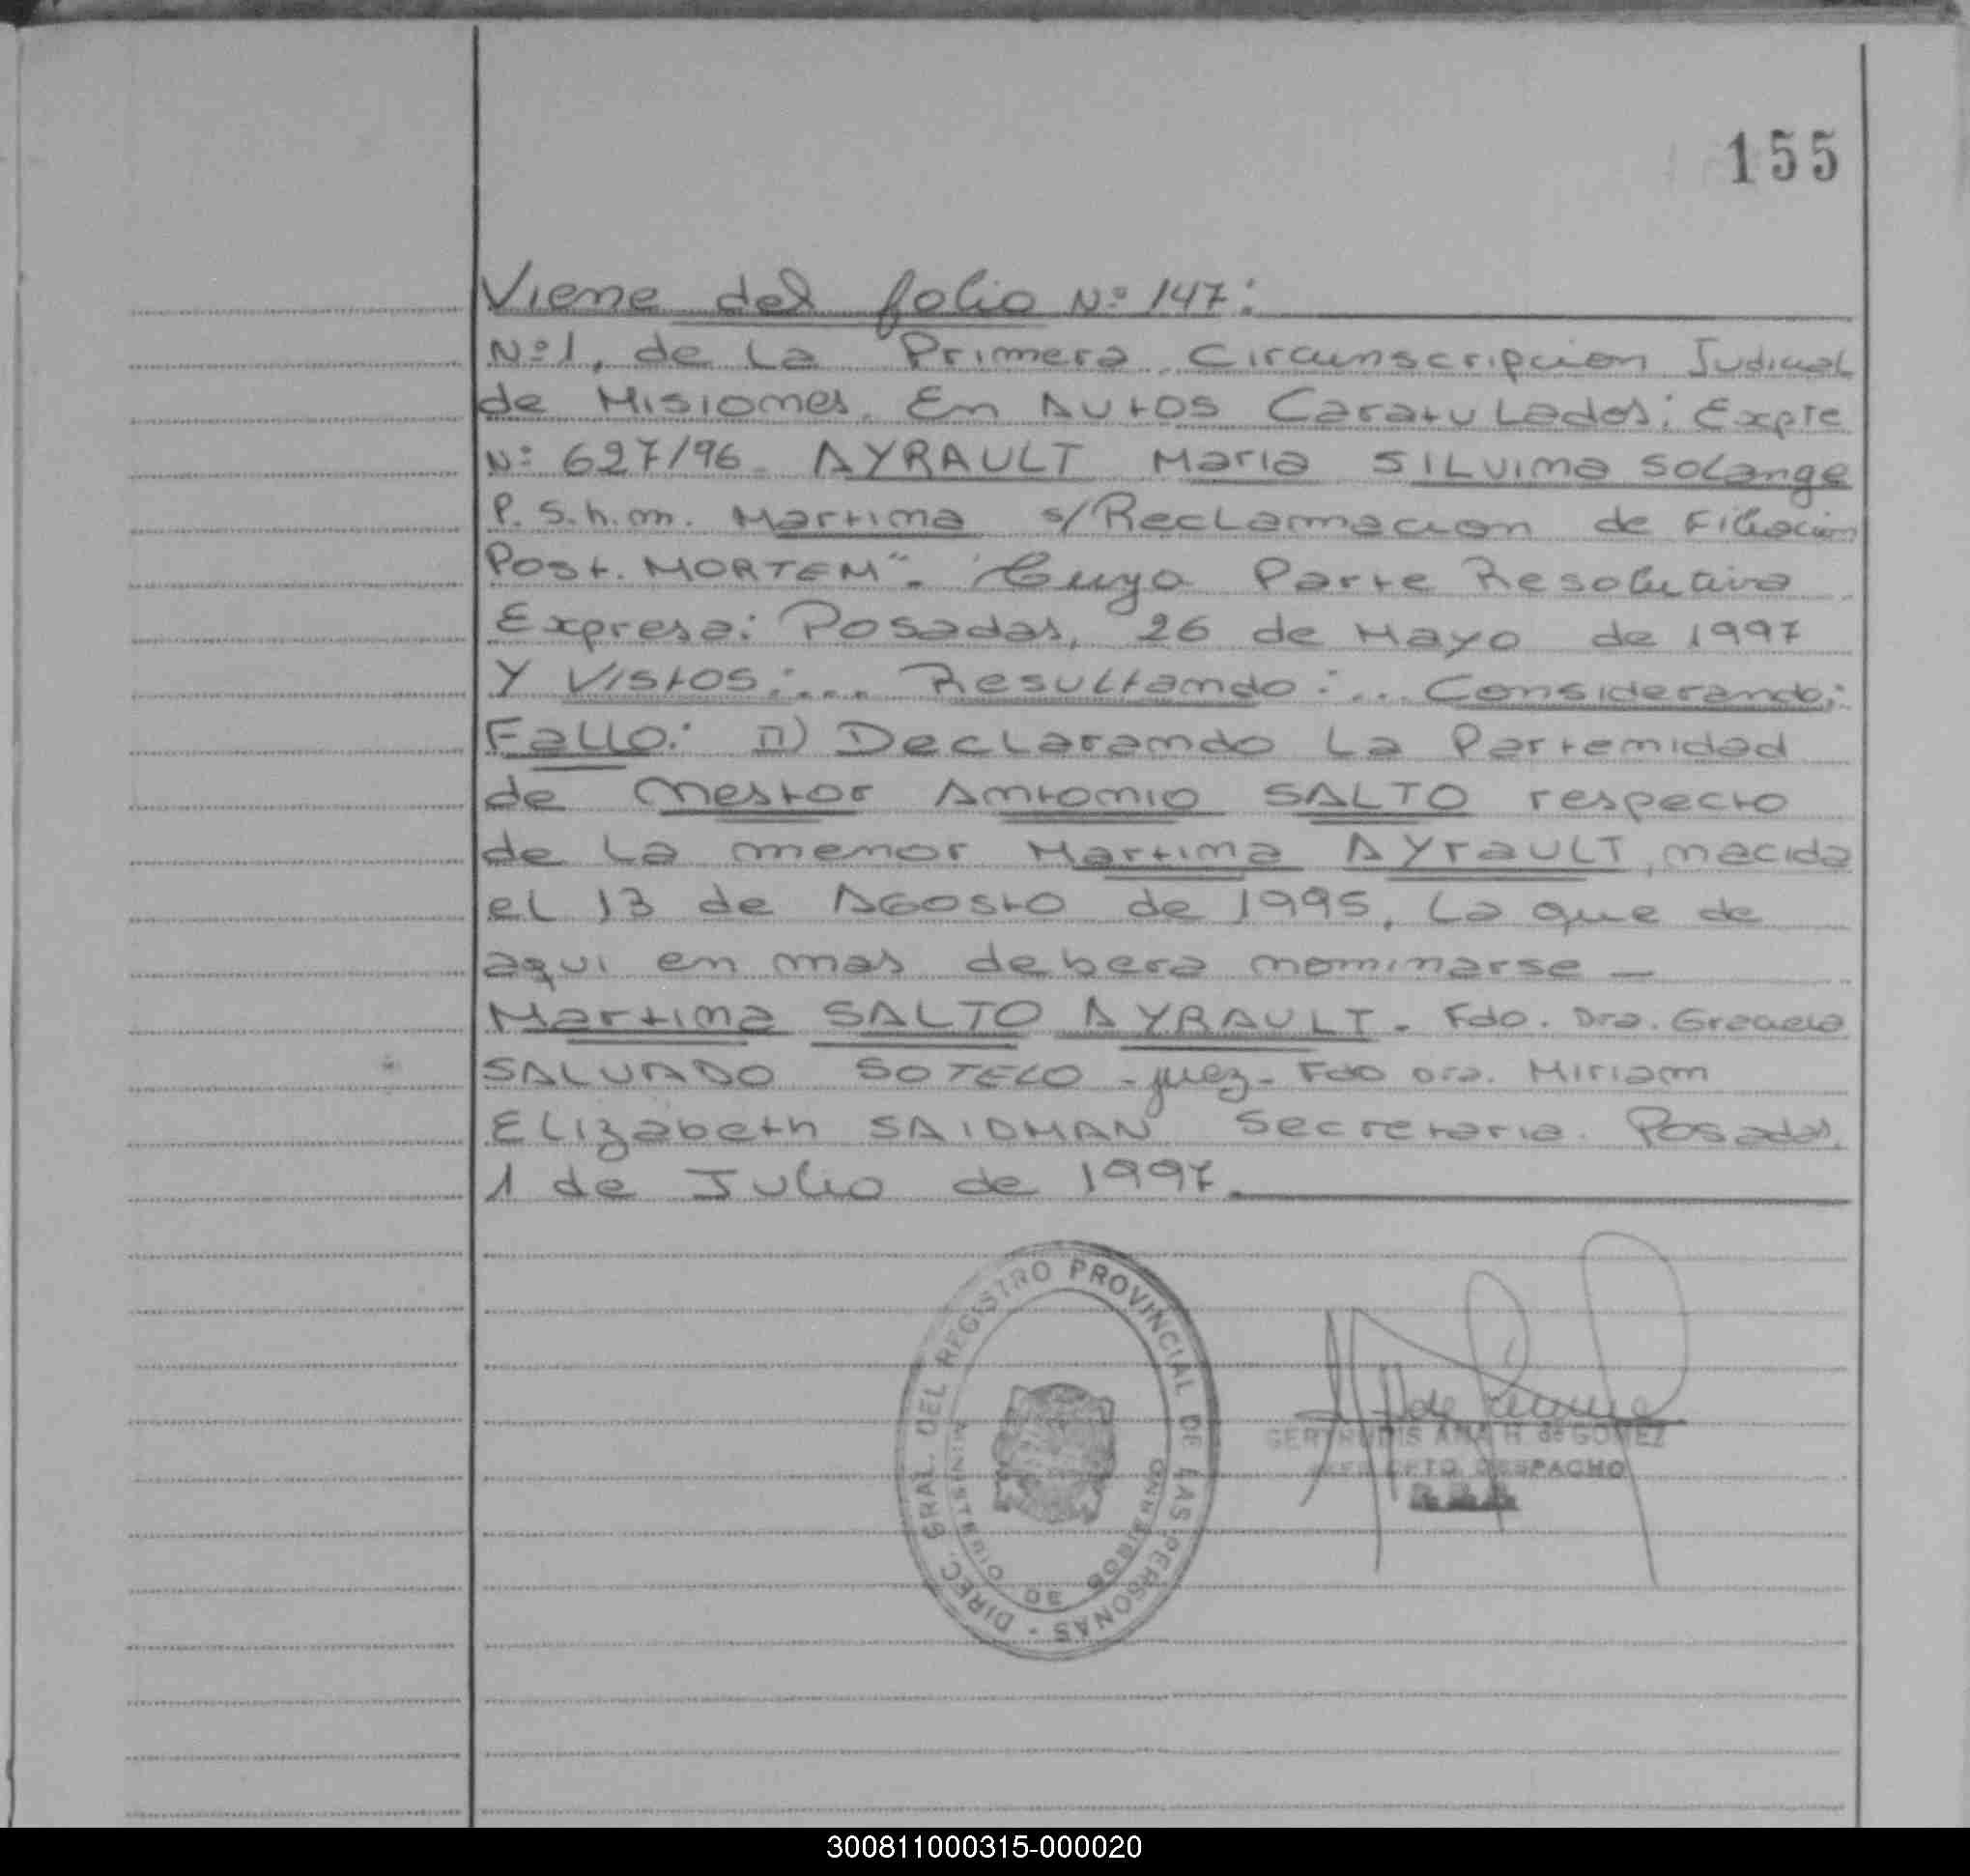 155
Viene del folio Nº 147:
Nº1, de La Primera Circunscripcion Judicial
de Misiones. En Autos Caratulados: Expte
Nº 627/96. AYRAULT Maria SILvina Solange
P. S. h. m. Martina s/Reclamacion de Filiacion
Post. MORTEM". Cuya Parte Resolutiva
Expresa: Posadas, 26 de Mayo de 1997
Y Vistos:... Resultando:... Considerando:
Fallo: II) Declarando La Parternidad
de Nestor Antonio SALTO respecto
de La menor Martina AYraULT, nacida
el 13 de AGosto de 1995, La que de
aqui en mas debera nominarse —
Martina SALTO AYRAULT. Fdo. Dra. Graciela
SALVADO SOTELO - juez - Fdo Dra. Miriam
ELizabeth SAIDMAN Secretaria. Posadas,
1 de Julio de 1997.
DIREC. GRAL. DEL REGISTRO PROVINCIAL DE LAS PERSONAS -
MINISTERIO DE GOBIERNO
GERTRUDIS ANA H. de GOMEZ
JEFE DPTO. DESPACHO
300811000315-000020